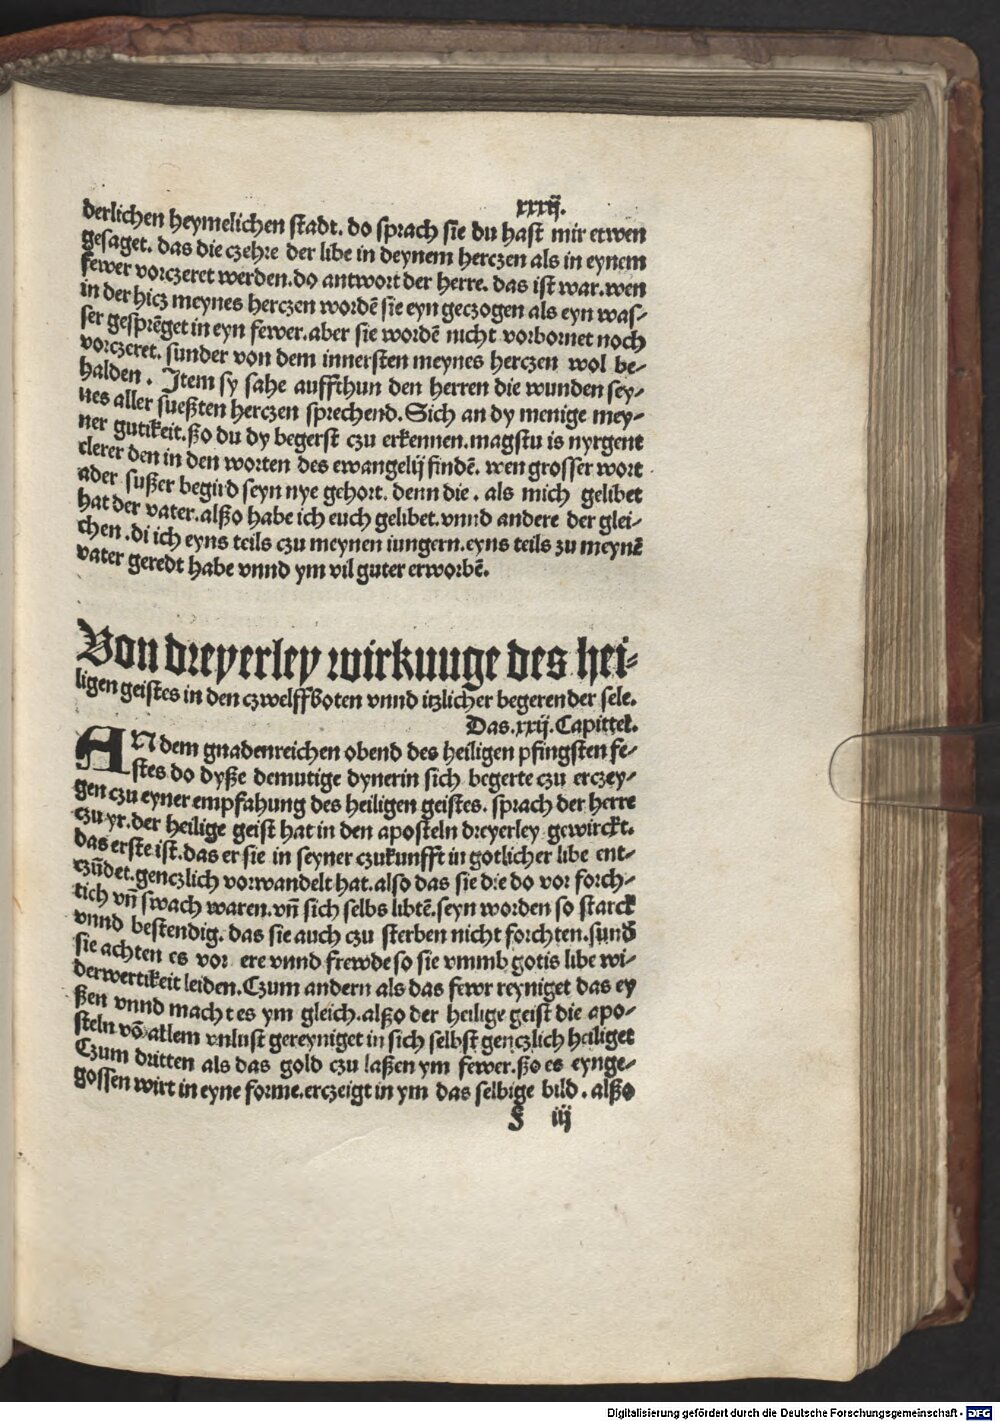 xxxij.
derlichen heymelichen stadt. do sprach sie du hast mir etwen
gesaget. das die czehre der libe in deynem herczen als in eynem
fewer vorczeret werden. do antwort der herre. das ist war. wen
in der hicz meynes herczen wordē sie eyn geczogen als eyn was-
ser gesprēget in eyn fewer. aber sie wordē nicht vorbornet noch
vorczeret. sunder von dem innersten meynes herczen wol be-
halden. Item sy sahe auffthun den herren die wunden sey-
nes aller sueßten herczen sprechend. Sich an dy menige mey-
ner gutikeit. ßo du dy begerst czu erkennen. magstu is nyrgent
clerer den in den worten des ewangelij findē. wen grosser wort
ader sußer begird seyn nye gehort. denn die. als mich gelibet
hat der vater. alßo habe ich euch gelibet. vnnd andere der glei-
chen. di ich eyns teils czu meynen iungern. eyns teils zu meynē
vater geredt habe vnnd ym vil guter erworbē.
Von dreyerley wirkunge des hei-
ligen geistes in den czwelffboten vnnd itzlicher begerender sele.
Das. xxij. Capittel.
AN dem gnadenreichen obend des heiligen pfingsten fe-
stes do dyße demutige dynerin sich begerte czu erczey-
gen czu eyner empfahung des heiligen geistes. sprach der herre
czu yr. der heilige geist hat in den aposteln dreyerley gewirckt.
das erste ist. das er sie in seyner czukunfft in gotlicher libe ent-
czūdet. genczlich vorwandelt hat. also das sie die do vor forch-
tich vñ swach waren. vñ sich selbs libtē. seyn worden so starck
vnnd bestendig. das sie auch czu sterben nicht forchten. sund̄
sie achten es vor ere vnnd frewde so sie vmmb gotis libe wi-
derwertikeit leiden. Czum andern als das fewr reyniget das ey
ßen vnnd macht es ym gleich. alßo der heilige geist die apo-
steln vō allem vnlust gereyniget in sich selbst genczlich heiliget
Czum dritten als das gold czu laßen ym fewer. ßo es eynge-
gossen wirt in eyne forme. erczeigt in ym das selbige bild. alßo
§ iij
Digitalisierung gefördert durch die Deutsche Forschungsgemeinschaft - DFG